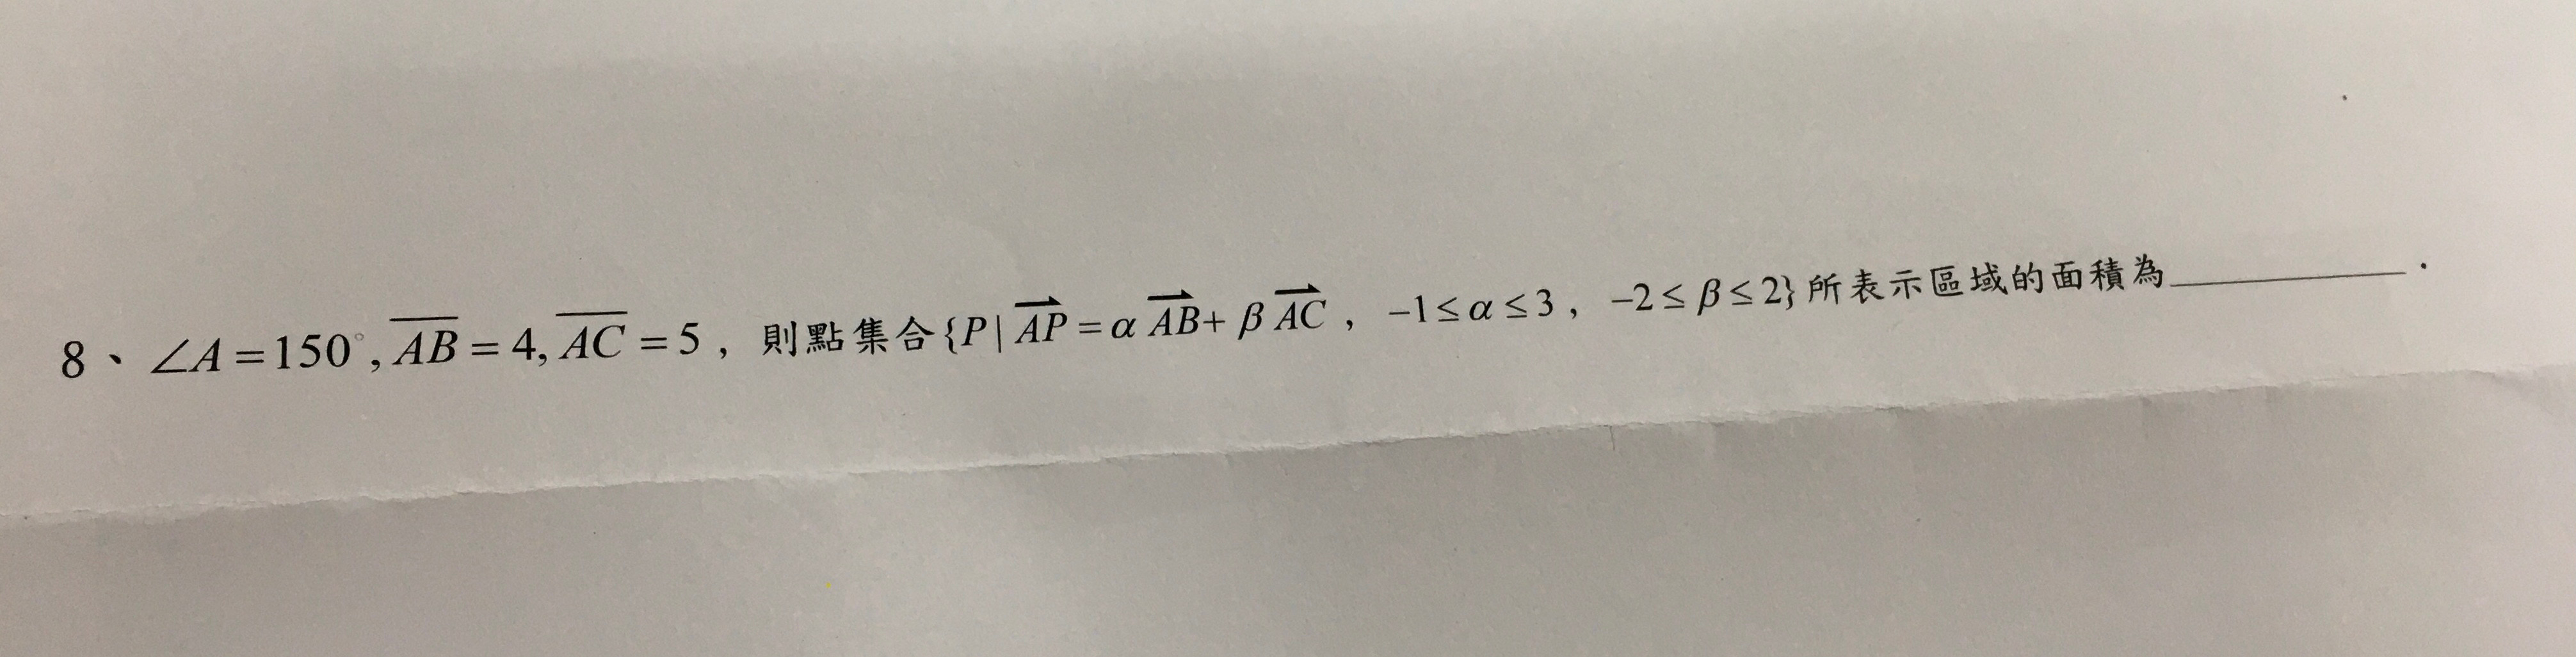 8、∠A=150°, \overline{AB}=4, \overline{AC}=5，則點集合{P| \overrightarrow{AP}=α\overrightarrow{AB}+β\overrightarrow{AC}，-1≤α≤3，-2≤β≤2}所表示區域的面積為__________．